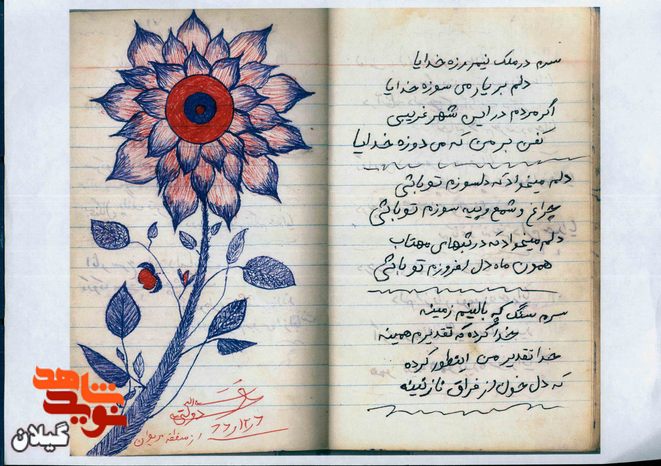 سرم در ملک نیمرزه خدایا
دلم بر یار می سوزه خدایا
اگر مردم در این شهر غریبی
کفن بر من که می دوزه خدایا
دلم میخواد که دلسوزم تو باشی
چراغ و شمع و پیه سوزم تو باشی
دلم میخواد که در شبهای مهتاب
همون ماه دل افروزم تو باشی
سرم سنگ که بالینم زمینه
خدا کرده که تقدیرم همینه
خدا تقدیر من اینطور کرده
که دل خون از فراق نازنینه
دولتی
۶۶/۱۲/۶
از منطقه مریوان
نوید شاهد
گیلان